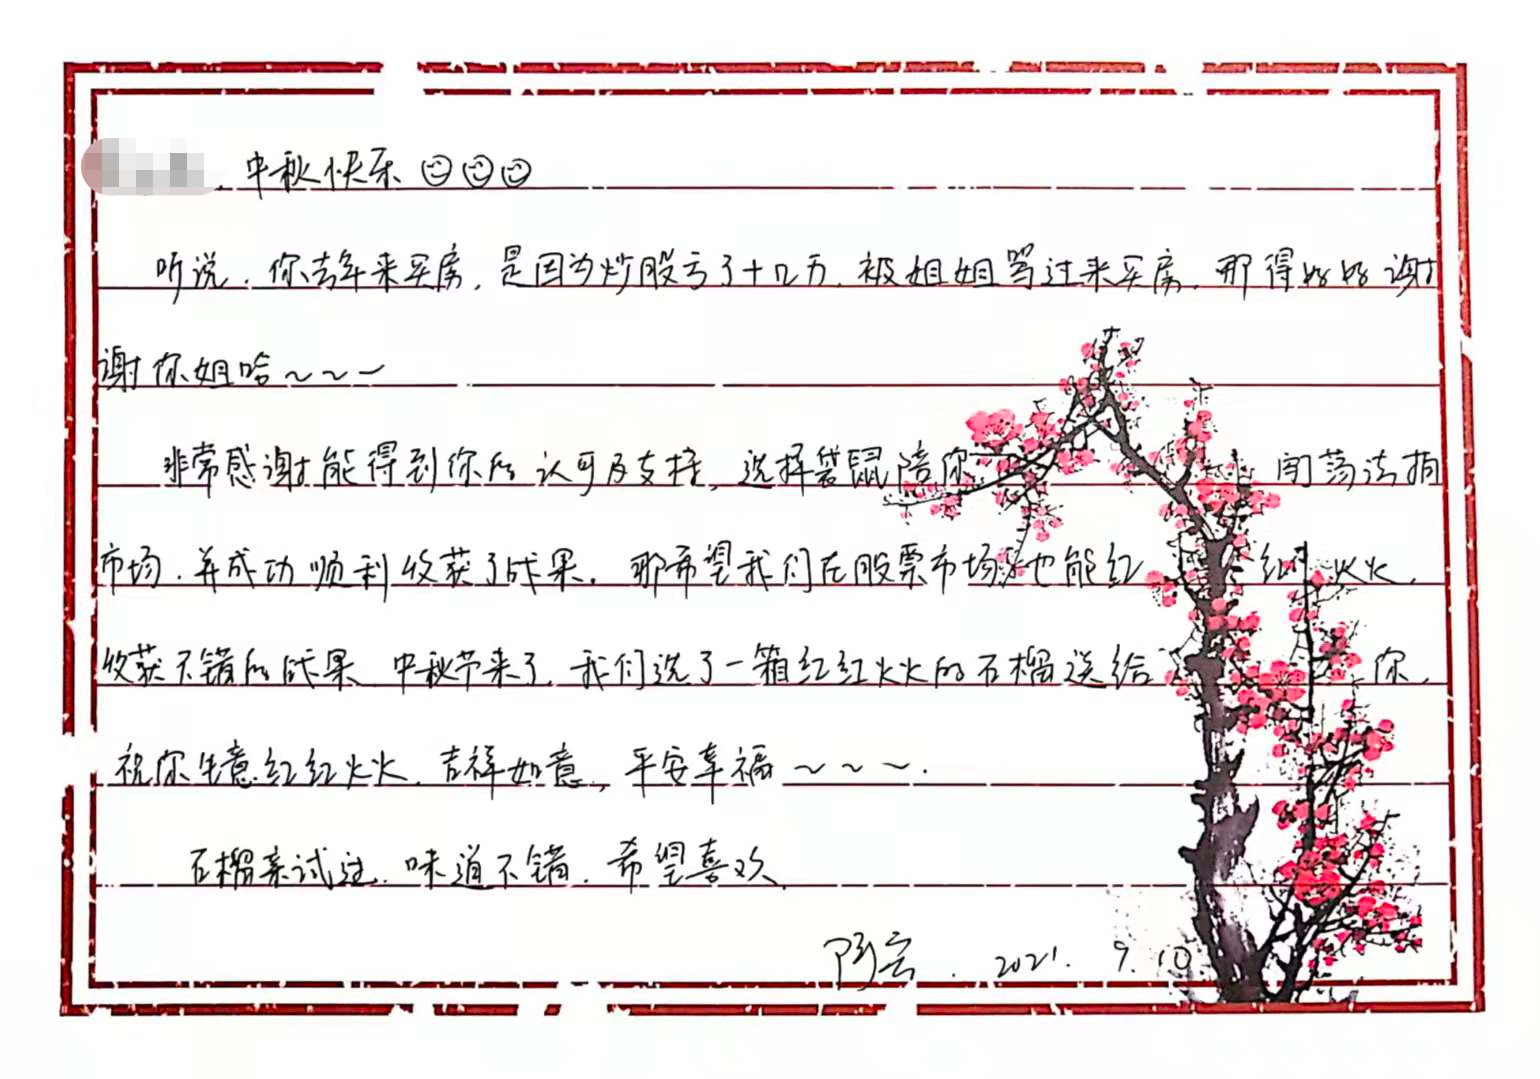 中秋快乐
听说,你去年来买房,是因为炒股亏了十几万,被姐姐骂过来买房,那得好好谢
谢你姐哈~~~
非常感谢能得到你的认可及支持,选择袋鼠陪你闯荡法拍
市场,并成功顺利收获了成果。那希望我们在股票市场也能红红火火,
收获不错的成果,中秋节来了,我们选了一箱红红火火的石榴送给你,
祝你生意红红火火,吉祥如意,平安幸福~~~.
石榴亲试过,味道不错,希望喜欢.
阿云.2021.9.10